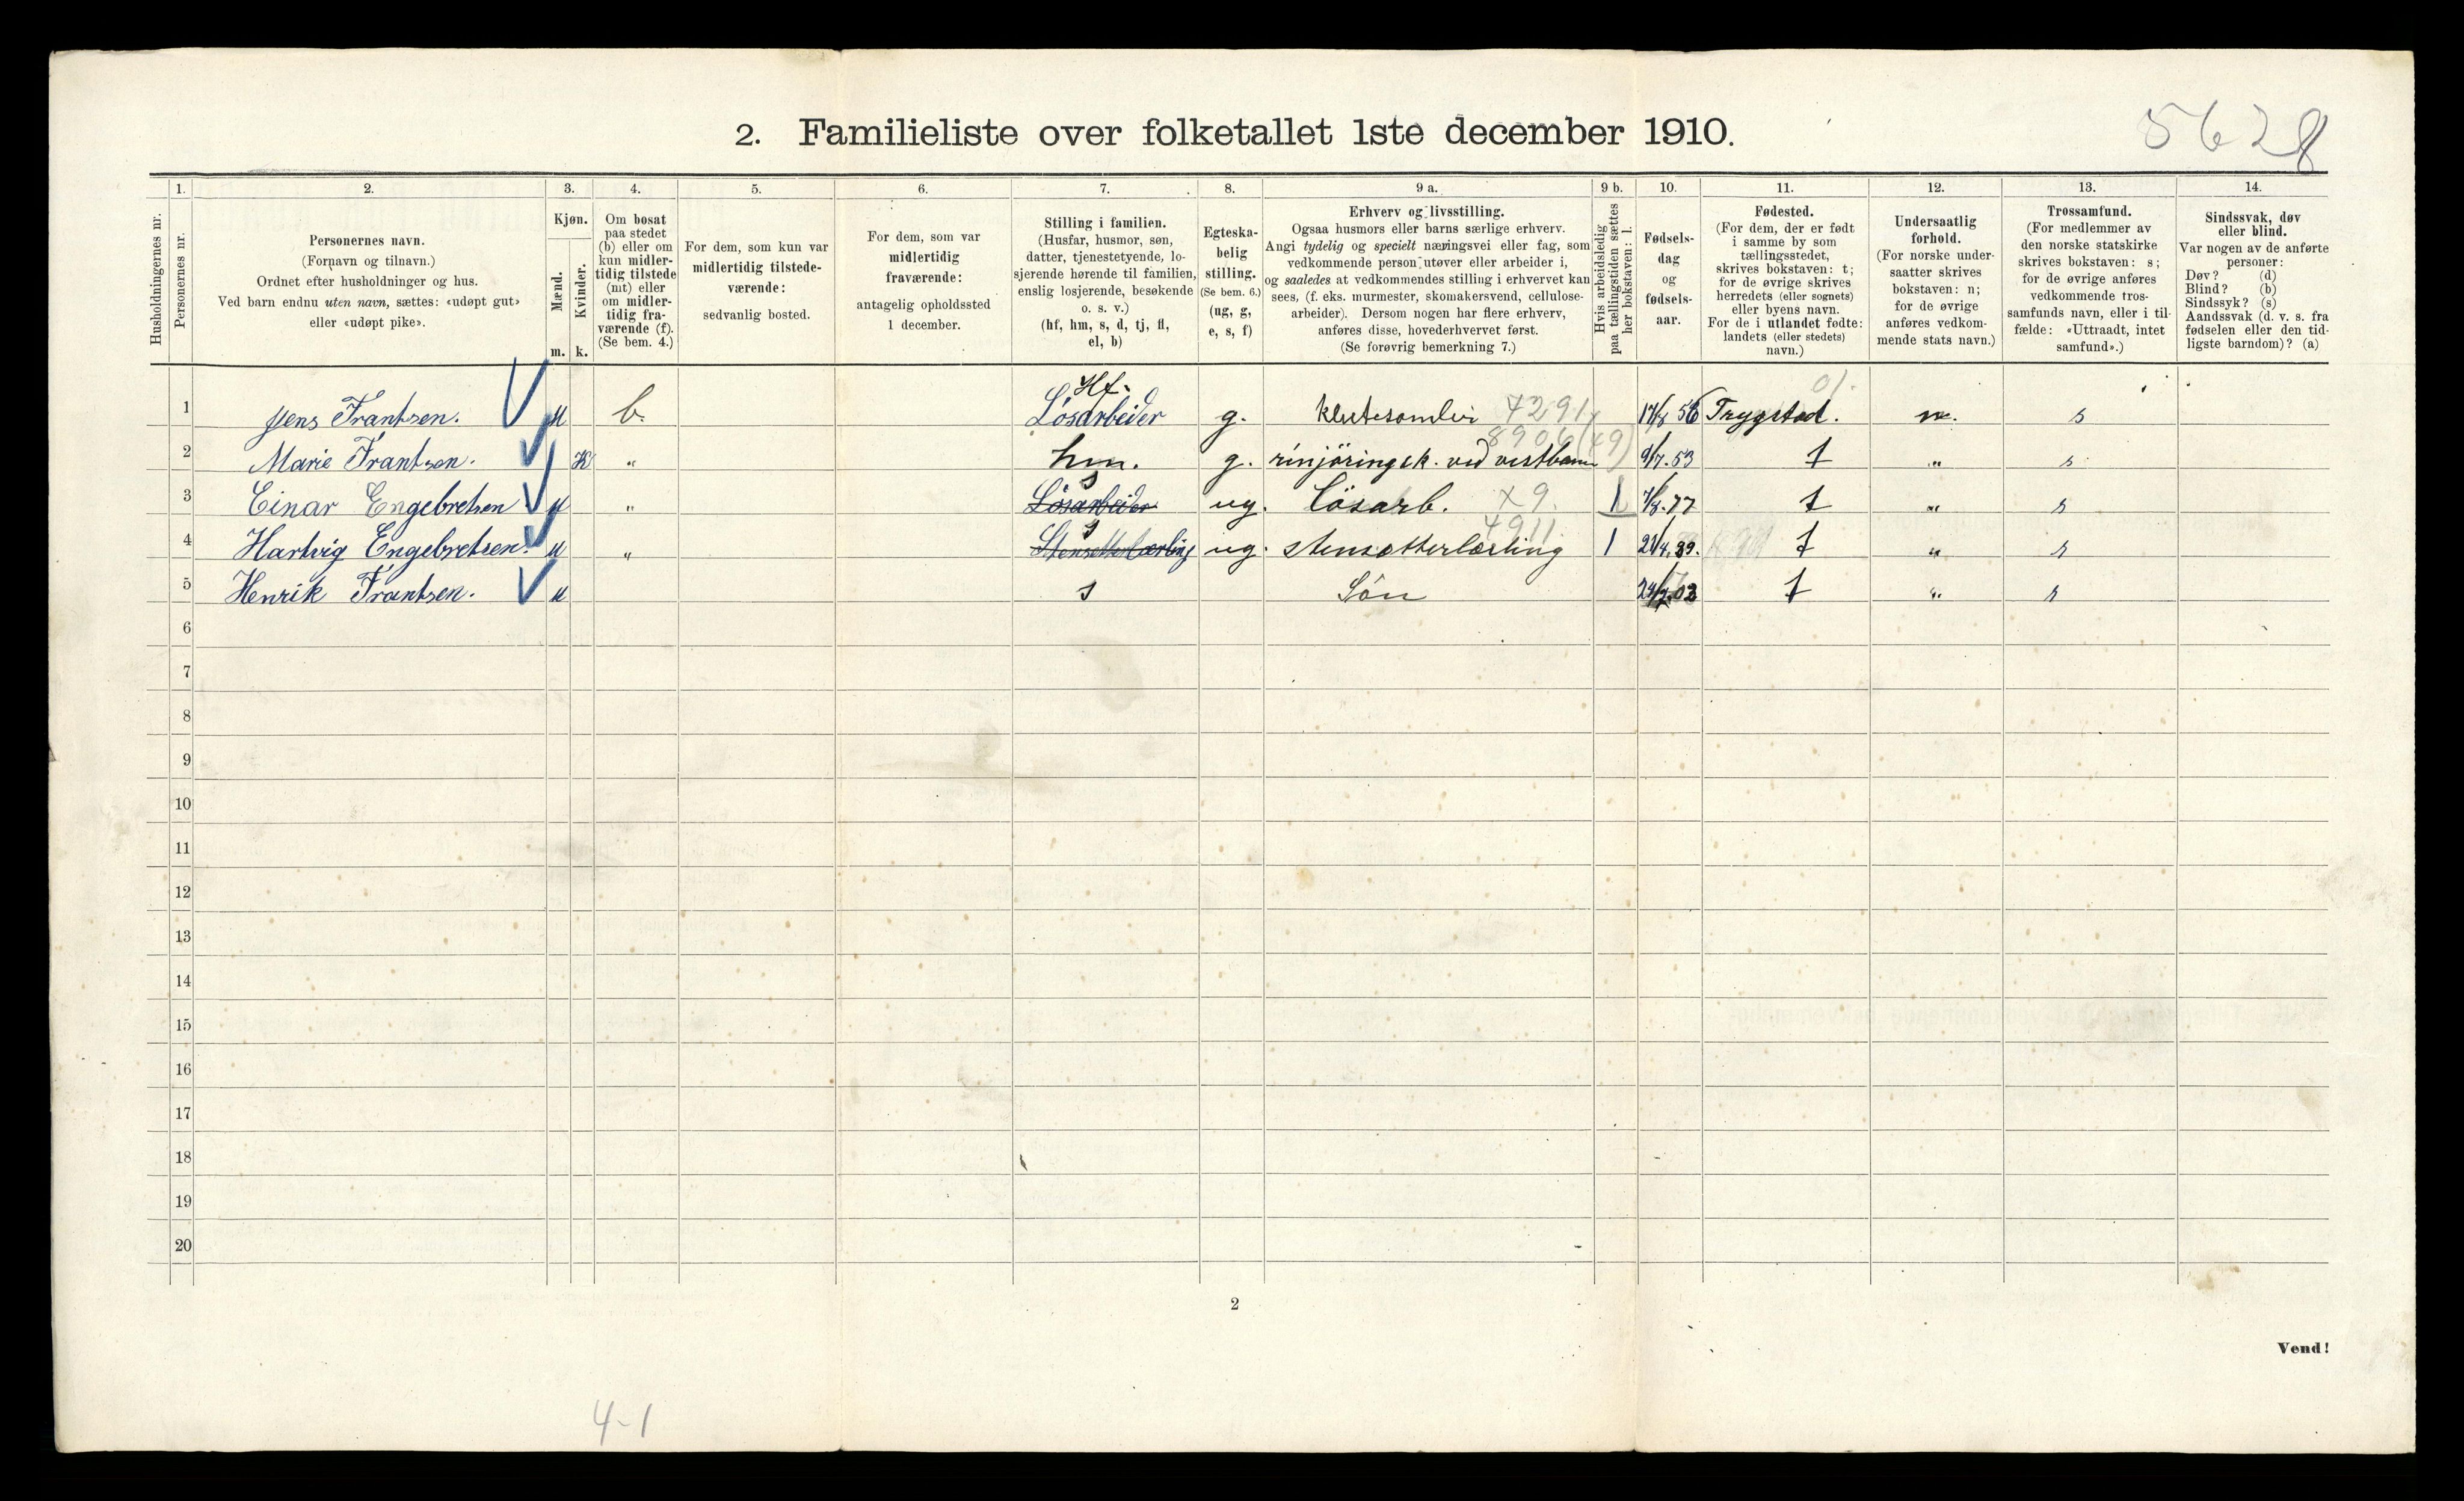 5628
2. Familieliste over folketallet 1ste december 1910.
1. 2. 3. 4. 5. 6. 7. 8. 9 a. 9 b. 10. 11. 12. 13. 14.
Husholdningernes nr.
Personernes nr.
Personernes navn.
(Fornavn og tilnavn.)
Ordnet efter husholdninger og hus.
Ved barn endnu uten navn, sættes: «udøpt gut»
eller «udøpt pike».
Kjøn.
Mænd.
m.
Kvinder.
k.
Om bosat
paa stedet
(b) eller om
kun midler-
tidig tilstede
(mt) eller
om midler-
tidig fra-
værende (f).
(Se bem. 4.)
For dem, som kun var
midlertidig tilstede-
værende:
sedvanlig bosted.
For dem, som var
midlertidig
fraværende:
antagelig opholdssted
1 december.
Stilling i familien.
(Husfar, husmor, søn,
datter, tjenestetyende, lo-
sjerende hørende til familien,
enslig losjerende, besøkende
o. s. v.)
(hf, hm, s, d, tj, fl,
el, b)
Egteska-
belig
stilling.
(Se bem. 6.)
(ug, g,
e, s, f)
Erhverv og livsstilling.
Ogsaa husmors eller barns særlige erhverv.
Angi tydelig og specielt næringsvei eller fag, som
vedkommende person utøver eller arbeider i,
og saaledes at vedkommendes stilling i erhvervet kan
sees, (f. eks. murmester, skomakersvend, cellulose-
arbeider). Dersom nogen har flere erhverv,
anføres disse, hovederhvervet først.
(Se forøvrig bemerkning 7.)
Hvis arbeidsledig
paa tællingstiden sættes
her bokstaven: l.
Fødsels-
dag
og
fødsels-
aar.
Fødested.
(For dem, der er født
i samme by som
tællingsstedet,
skrives bokstaven: t;
for de øvrige skrives
herredets (eller sognets)
eller byens navn.
For de i utlandet fødte:
landets (eller stedets)
navn.)
Undersaatlig
forhold.
(For norske under-
saatter skrives
bokstaven: n;
for de øvrige
anføres vedkom-
mende stats navn.)
Trossamfund.
(For medlemmer av
den norske statskirke
skrives bokstaven: s;
for de øvrige anføres
vedkommende tros-
samfunds navn, eller i til-
fælde: «Uttraadt, intet
samfund».)
Sindssvak, døv
eller blind.
Var nogen av de anførte
personer:
Døv? (d)
Blind? (b)
Sindssyk? (s)
Aandssvak (d. v. s. fra
fødselen eller den tid-
ligste barndom)? (a)
Hf. 01.
1 Jens Frantsen. M b. Løsarbeider g. klutesamler 7291 17/8 56 Trygstad. n. s
8906 (49)
2 Marie Frantsen. K " hm. g. rinjöringsk. ved vestbanen 9/7. 53 t " s
s
3 Einar Engebretsen M " Løsarbeider ug. Cösarb. X9. l 7/8. 77 t " s
s 4911
4 Hartvig Engebretsen. M " Stensetterlærling ug. stensætterlærling l 21/4. 89. t " s
5 Henrik Frantsen. M s Sön 24/7. 02 t " s
6
7
8
9
10
11
12
13
14
15
16
17
18
19
20
2
Vend!
4-1